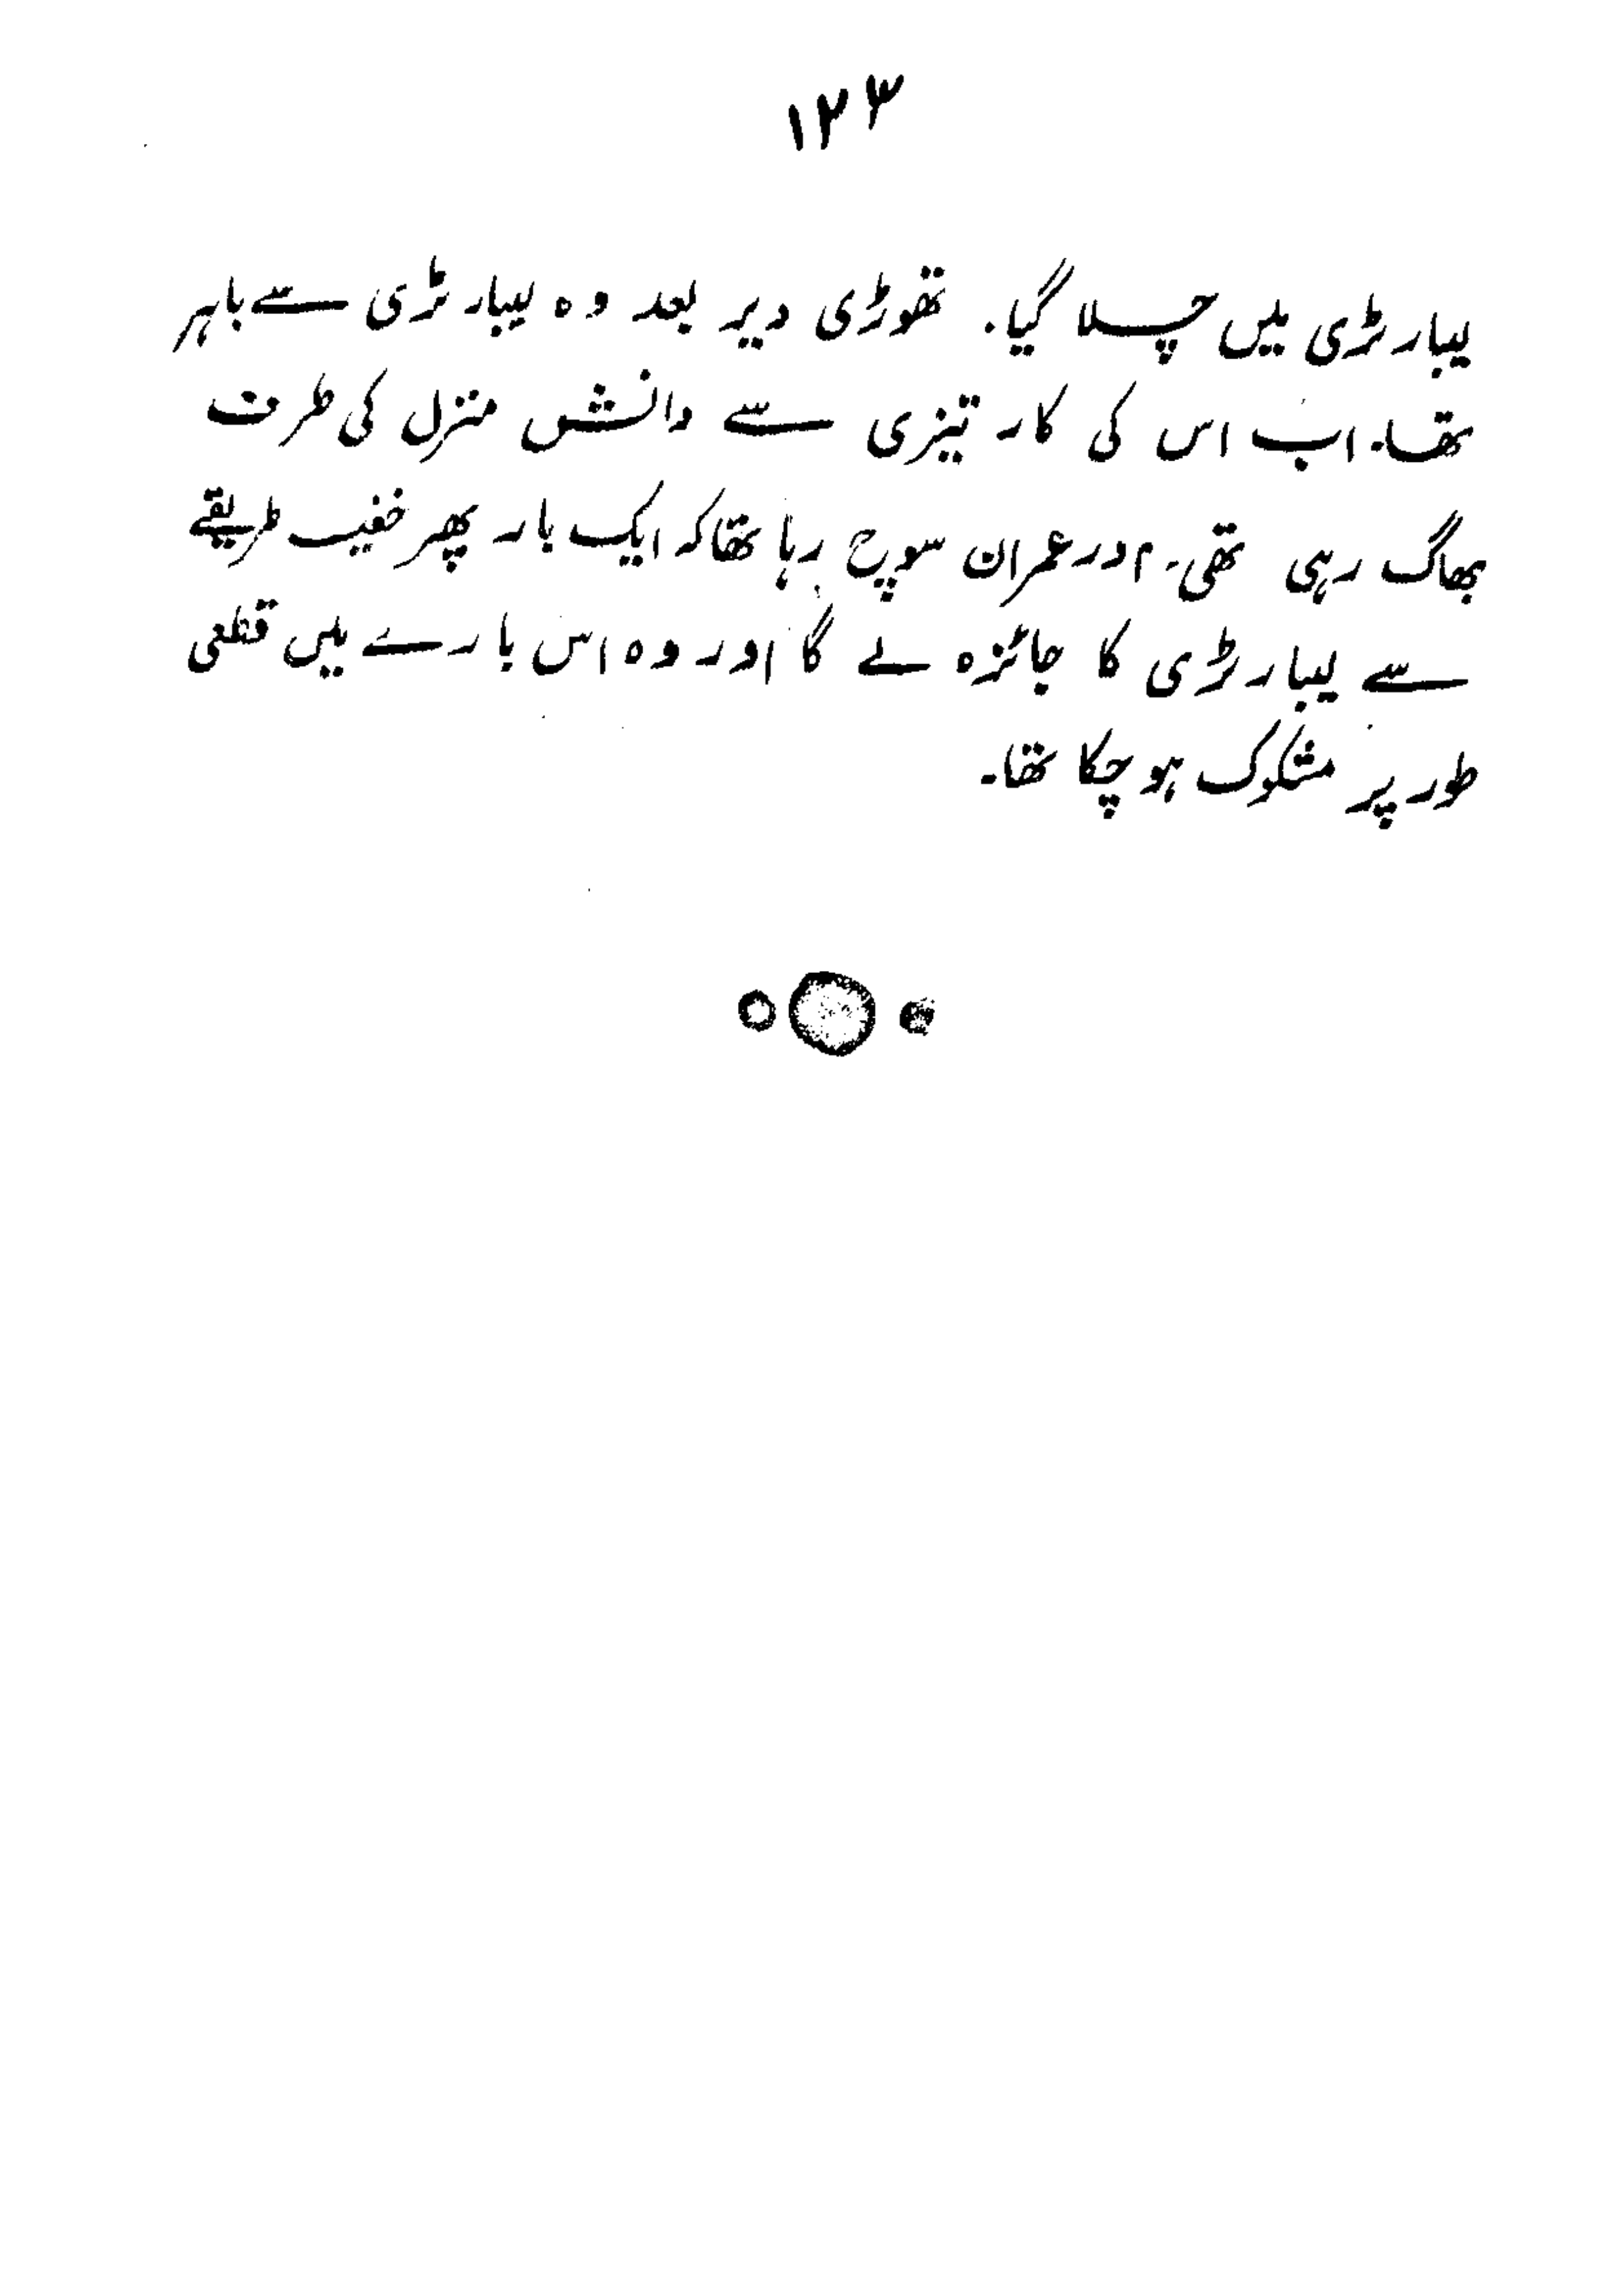 ۱۲۳
لیبارٹری میں چلا گیا۔ تھوڑی دیر بعد وہ لیبارٹری سے باہر
تھا۔ اب اس کی کار تیزی سے دانش منزل کی طرف
بھاگ رہی تھی۔ اور عمران سوچ رہا تھا کہ ایک بار پھر خفیہ طریقے
سے لیبارٹری کا جائزہ لے گا اور وہ اس بارے میں قطعی
طور پر مشکوک ہو چکا تھا۔